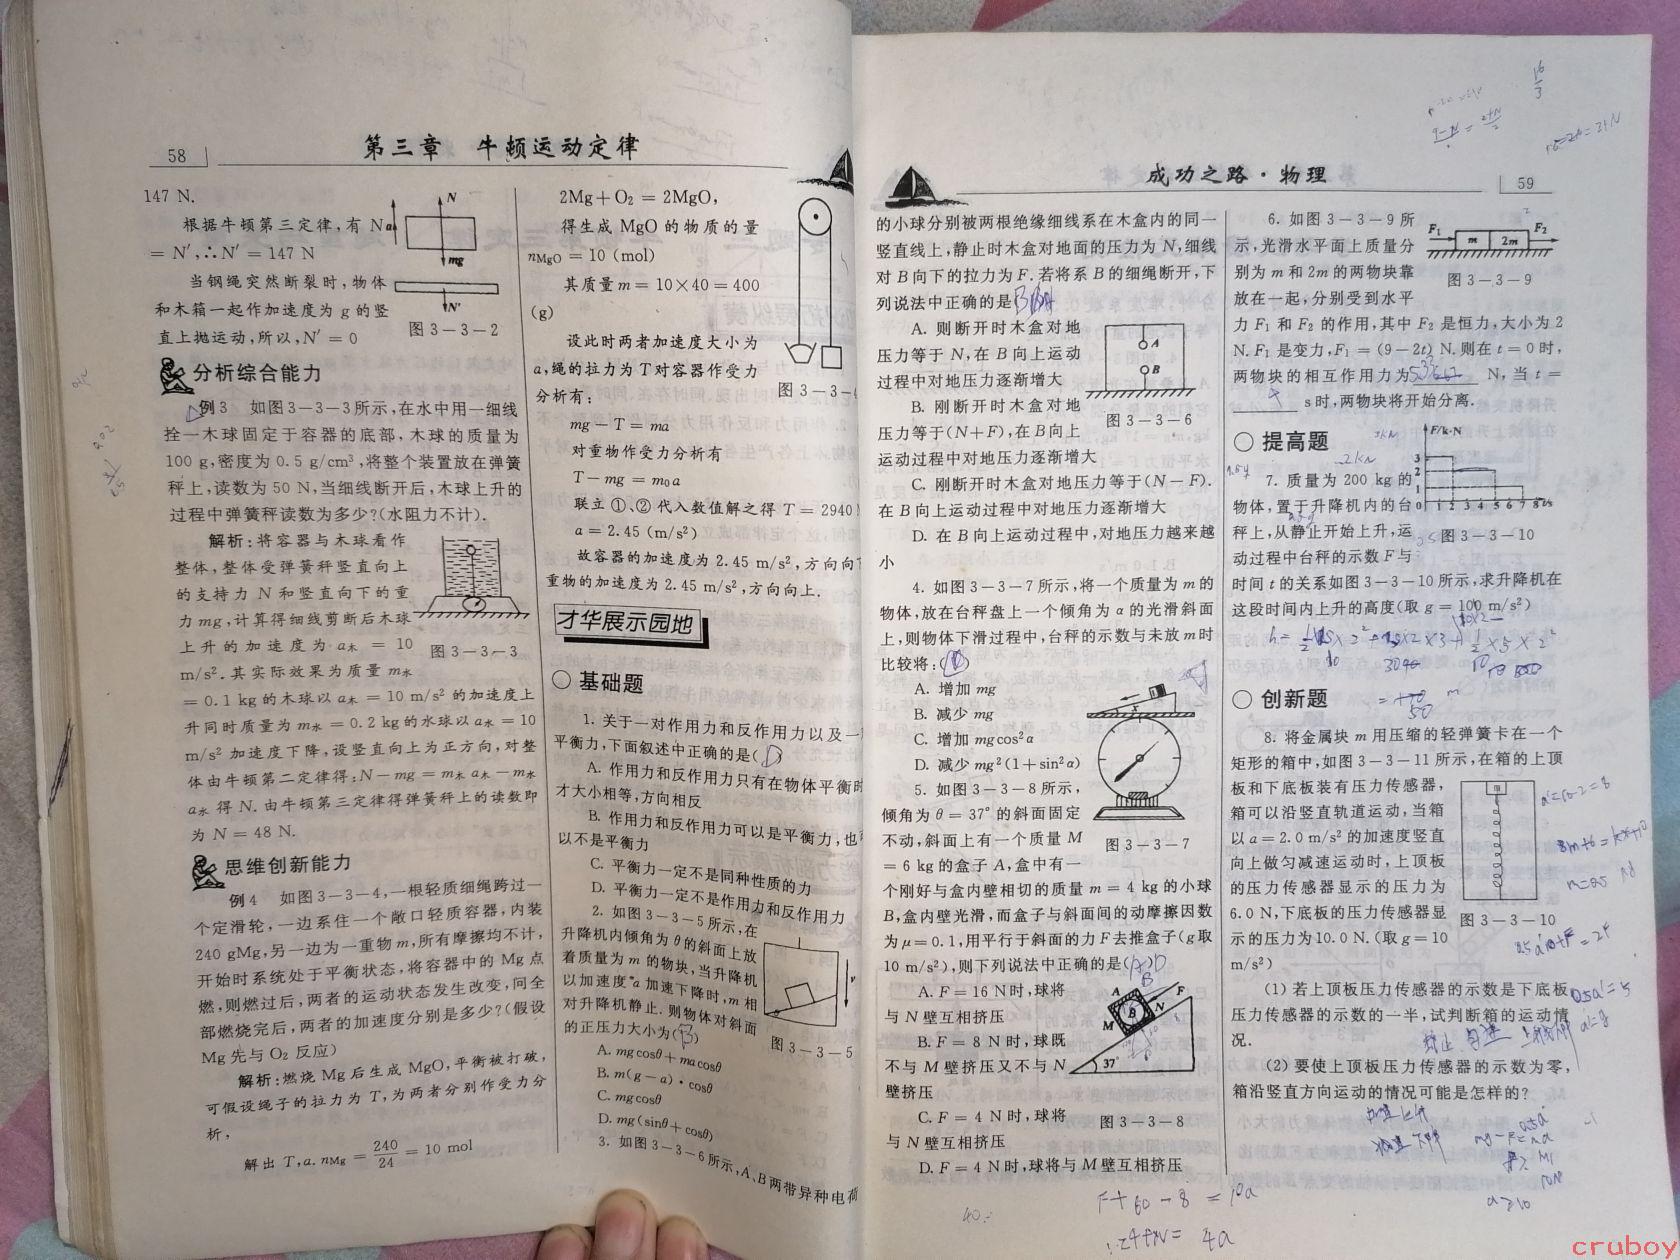 58
第三章 牛顿运动定律
147 N.
根据牛顿第三定律,有 N
= N′,∴N′ = 147 N
当钢绳突然断裂时,物体
和木箱一起作加速度为 g 的竖
直上抛运动,所以,N′ = 0
N
a
mg
N′
图 3-3-2
分析综合能力
例3 如图3-3-3所示,在水中用一细线
拴一木球固定于容器的底部,木球的质量为
100 g,密度为 0.5 g/cm³,将整个装置放在弹簧
秤上,读数为 50 N,当细线断开后,木球上升的
过程中弹簧秤读数为多少?(水阻力不计).
解析:将容器与木球看作
整体,整体受弹簧秤竖直向上
的支持力 N 和竖直向下的重
力 mg,计算得细线剪断后木球
上升的加速度为 a木 = 10
m/s².其实际效果为质量 m木
= 0.1 kg 的木球以 a木 = 10 m/s² 的加速度上
升同时质量为 m水 = 0.2 kg 的水球以 a水 = 10
m/s² 加速度下降,设竖直向上为正方向,对整
体由牛顿第二定律得:N-mg = m木 a木 - m水
a水 得 N.由牛顿第三定律得弹簧秤上的读数即
为 N = 48 N.
图 3-3-3
思维创新能力
例4 如图3-3-4,一根轻质细绳跨过一
个定滑轮,一边系住一个敞口轻质容器,内装
240 gMg,另一边为一重物 m,所有摩擦均不计,
开始时系统处于平衡状态,将容器中的 Mg 点
燃,则燃过后,两者的运动状态发生改变,问全
部燃烧完后,两者的加速度分别是多少?(假设
Mg 先与 O₂ 反应)
解析:燃烧 Mg 后生成 MgO,平衡被打破,
可假设绳子的拉力为 T,为两者分别作受力分
析,
解出 T,a. nMg = 240/24 = 10 mol
2Mg+O₂ = 2MgO,
得生成 MgO 的物质的量
nMgO = 10 (mol)
其质量 m = 10×40 = 400
(g)
设此时两者加速度大小为
a,绳的拉力为 T 对容器作受力
分析有:
mg - T = ma
对重物作受力分析有
T - mg = m₀a
联立 ①、② 代入数值解之得 T = 2940
a = 2.45 (m/s²)
故容器的加速度为 2.45 m/s²,方向向
重物的加速度为 2.45 m/s²,方向向上.
图 3-3-4
才华展示园地
○ 基础题
1. 关于一对作用力和反作用力以及一
平衡力,下面叙述中正确的是(D)
A. 作用力和反作用力只有在物体平衡时
才大小相等,方向相反
B. 作用力和反作用力可以是平衡力,也可
以不是平衡力
C. 平衡力一定不是同种性质的力
D. 平衡力一定不是作用力和反作用力
2. 如图 3-3-5 所示,在
升降机内倾角为 θ 的斜面上放
着质量为 m 的物块,当升降机
以加速度 a 加速下降时,m 相
对升降机静止. 则物体对斜面
的正压力大小为(B)
A. mgcosθ+macosθ
B. m(g-a)·cosθ
C. mgcosθ
D. mg(sinθ+cosθ)
图 3-3-5
3. 如图 3-3-6所示,A、B两带异种电荷
成功之路·物理
59
的小球分别被两根绝缘细线系在木盒内的同一
竖直线上,静止时木盒对地面的压力为 N,细线
对 B 向下的拉力为 F. 若将系 B 的细绳断开,下
列说法中正确的是
A. 则断开时木盒对地
压力等于 N,在 B 向上运动
过程中对地压力逐渐增大
B. 刚断开时木盒对地
压力等于(N+F),在 B 向上
运动过程中对地压力逐渐增大
C. 刚断开时木盒对地压力等于(N-F).
在 B 向上运动过程中对地压力逐渐增大
D. 在 B 向上运动过程中,对地压力越来越
小
A
B
图 3-3-6
4. 如图 3-3-7 所示,将一个质量为 m 的
物体,放在台秤盘上一个倾角为 α 的光滑斜面
上,则物体下滑过程中,台秤的示数与未放 m 时
比较将:
A. 增加 mg
B. 减少 mg
C. 增加 mgcos²α
D. 减少 mg²(1+sin²α)
图 3-3-7
5. 如图 3-3-8 所示,
倾角为 θ = 37° 的斜面固定
不动,斜面上有一个质量 M
= 6 kg 的盒子 A,盒中有一
个刚好与盒内壁相切的质量 m = 4 kg 的小球
B,盒内壁光滑,而盒子与斜面间的动摩擦因数
为 μ = 0.1,用平行于斜面的力 F 去推盒子(g 取
10 m/s²),则下列说法中正确的是
A. F = 16 N时,球将
与 N 壁互相挤压
B. F = 8 N时,球既
不与 M 壁挤压又不与 N
壁挤压
C. F = 4 N时,球将
与 N 壁互相挤压
D. F = 4 N时,球将与 M 壁互相挤压
A
F
B
M
N
37°
图 3-3-8
F+60-8 = 10a
6. 如图 3-3-9 所
示,光滑水平面上质量分
别为 m 和 2m 的两物块靠
放在一起,分别受到水平
力 F₁ 和 F₂ 的作用,其中 F₂ 是恒力,大小为 2
N. F₁ 是变力,F₁ = (9-2t) N. 则在 t = 0 时,
两物块的相互作用力为 N,当 t =
s 时,两物块将开始分离.
F₁
m
2m
F₂
图 3-3-9
○ 提高题
7. 质量为 200 kg 的
物体,置于升降机内的台
秤上,从静止开始上升,运
动过程中台秤的示数 F 与
时间 t 的关系如图 3-3-10 所示,求升降机在
这段时间内上升的高度(取 g = 100 m/s²)
F/k·N
3
2
1
0 1 2 3 4 5 6 7 8 t/s
图 3-3-10
○ 创新题
8. 将金属块 m 用压缩的轻弹簧卡在一个
矩形的箱中,如图 3-3-11 所示,在箱的上顶
板和下底板装有压力传感器,
箱可以沿竖直轨道运动,当箱
以 a = 2.0 m/s² 的加速度竖直
向上做匀减速运动时,上顶板
的压力传感器显示的压力为
6.0 N,下底板的压力传感器显
示的压力为10.0 N.(取 g=10
m/s²)
图 3-3-10
(1) 若上顶板压力传感器的示数是下底板
压力传感器的示数的一半,试判断箱的运动情
况.
(2) 要使上顶板压力传感器的示数为零,
箱沿竖直方向运动的情况可能是怎样的?
cruboy